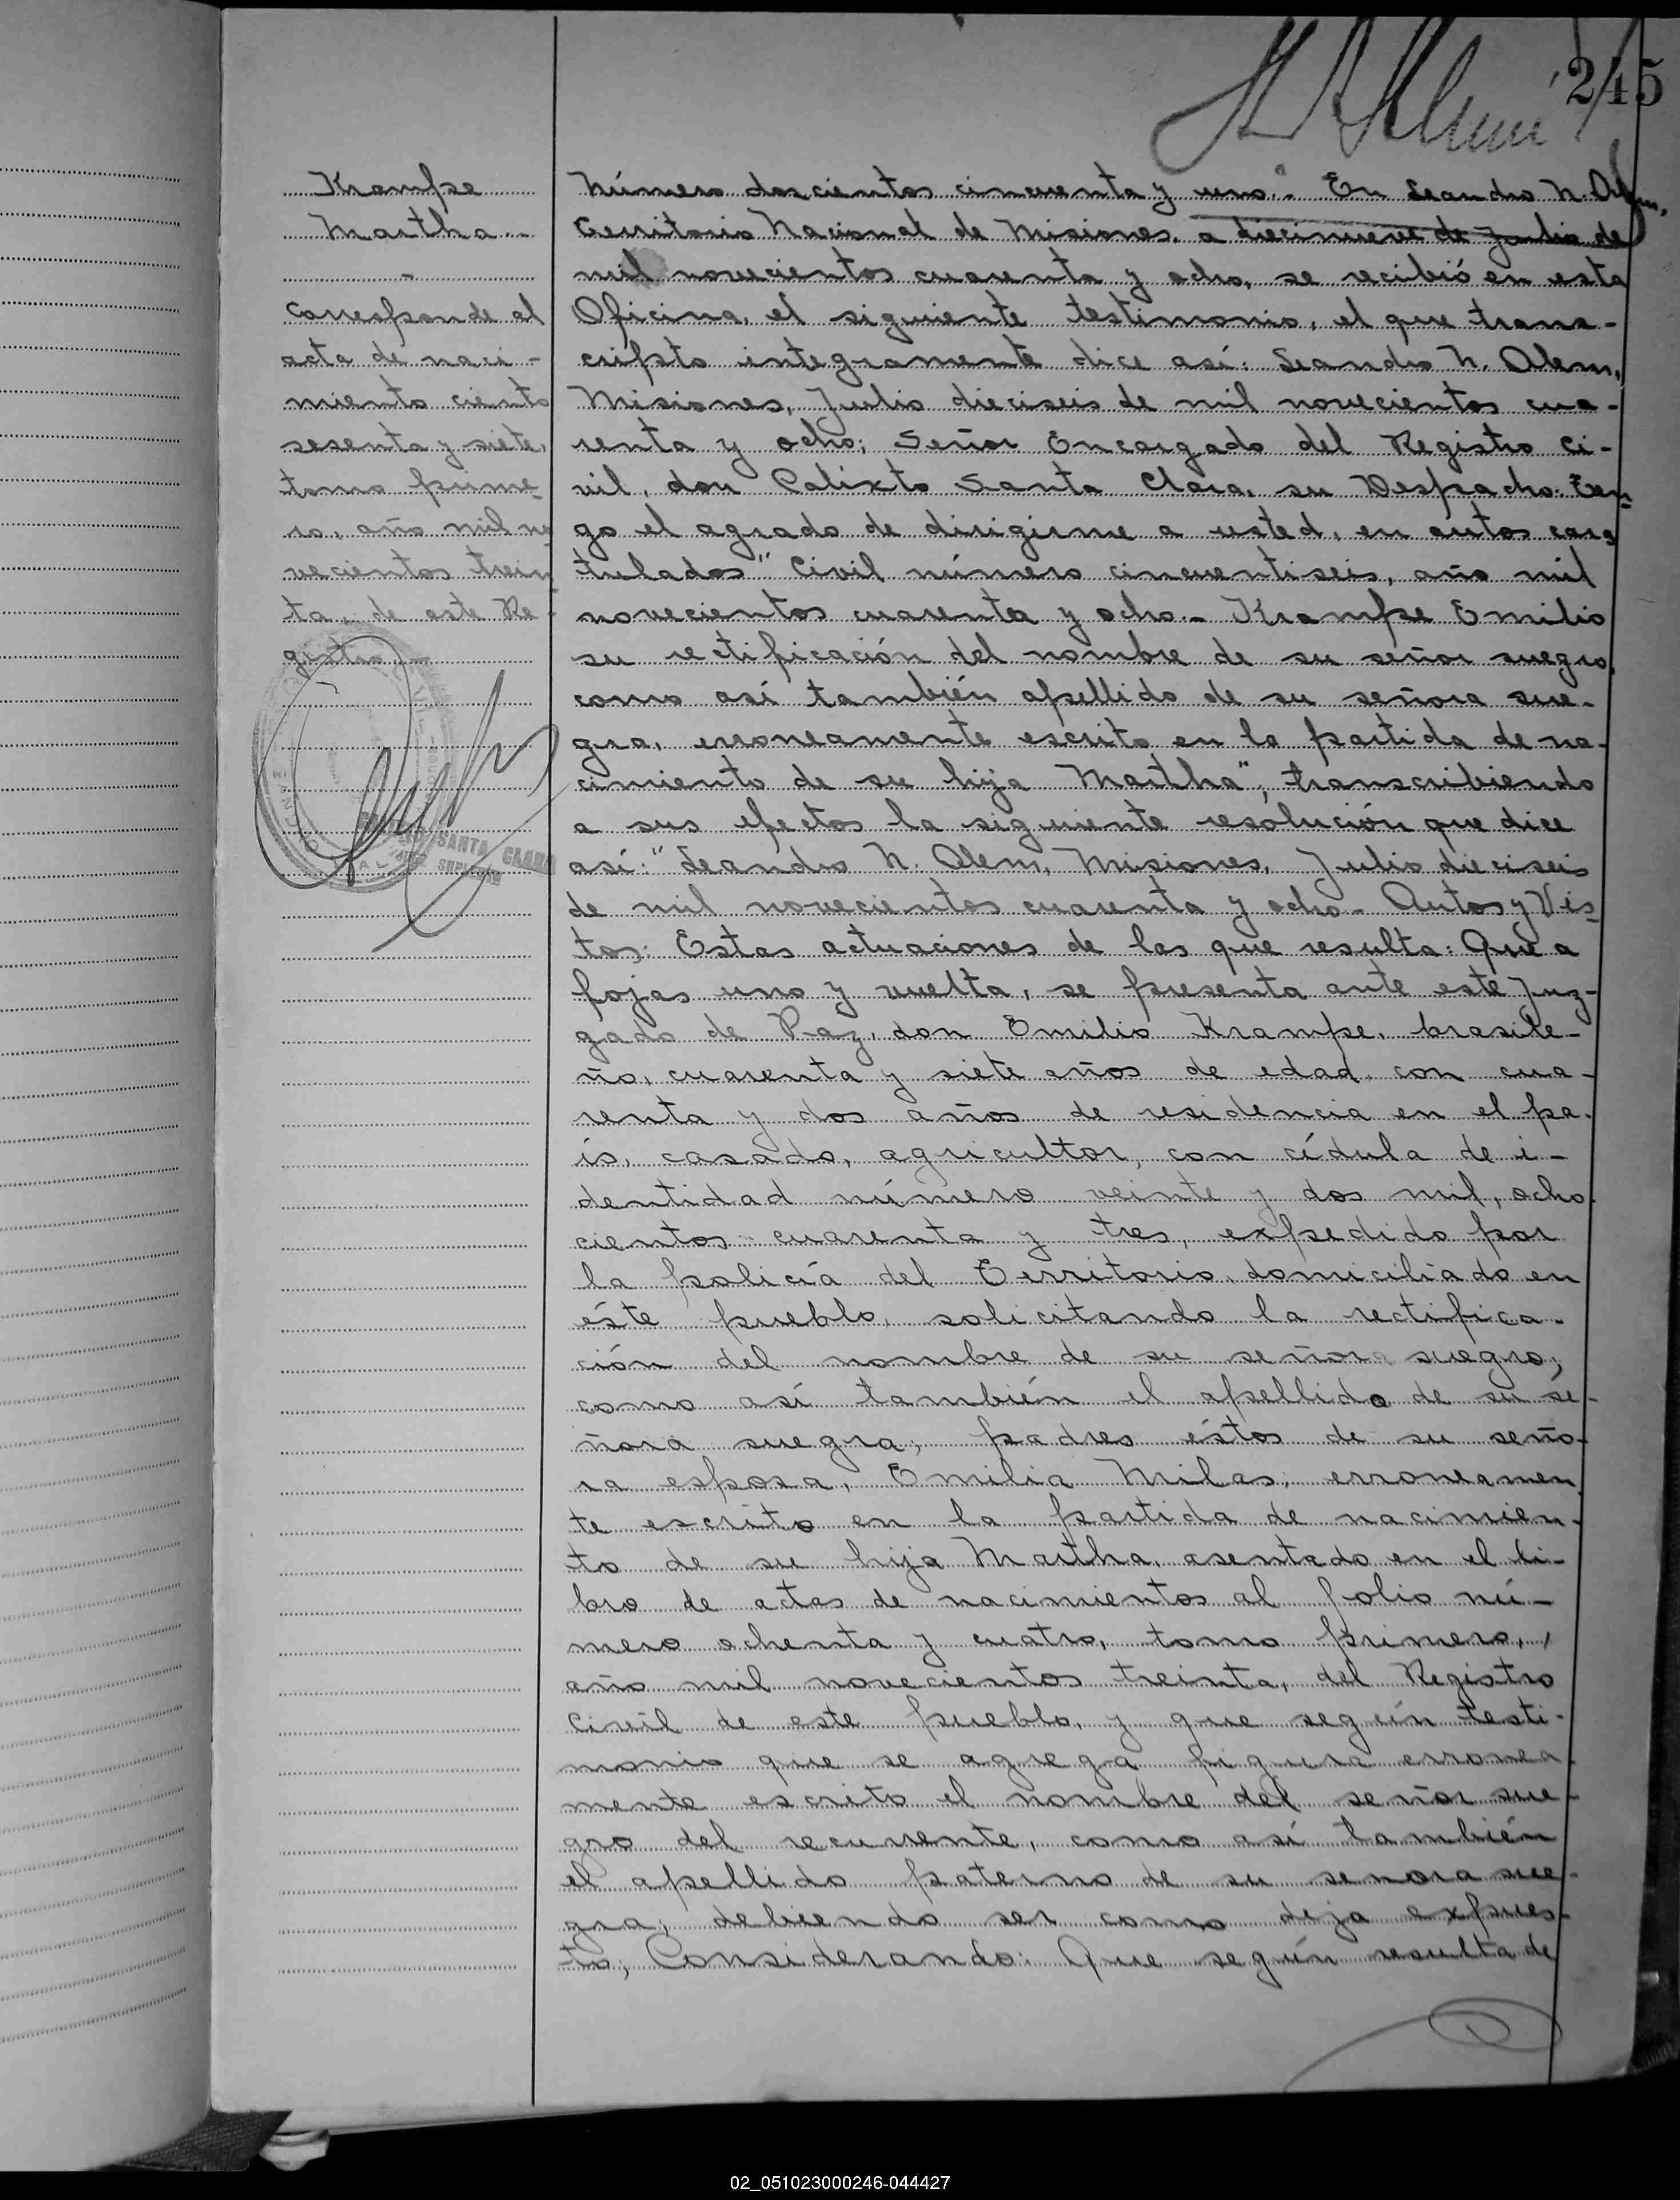 245
Krampe
Martha.-
-
Corresponde al
acta de naci-
miento ciento
sesenta y siete,
tomo prime-
ro, año mil no
vecientos trein
ta, de este Re-
gistro.-
SANTA CLARA
SUPLENTE
Número doscientos cincuenta y uno.- En Leandro N. Alem,
Territorio Nacional de Misiones, a diecinueve de Julio de
mil novecientos cuarenta y ocho, se recibió en esta
Oficina, el siguiente testimonio, el que trans-
cripto integramente dice así: Leandro N. Alem,
Misiones, Julio dieciseis de mil novecientos cua-
renta y ocho; Señor Encargado del Registro Ci-
vil, don Calixto Santa Clara, su Despacho: Ten-
go el agrado de dirigirme a usted, en autos cara
tulados "Civil número cincuentiseis, año mil
novecientos cuarenta y ocho.- Krampe Emilio
su rectificación del nombre de su señor suegro,
como así también apellido de su señora sue-
gra, erroneamente escrito en la partida de na-
cimiento de su hija Martha", transcribiendo
a sus efectos la siguiente resolución que dice
así: "Leandro N. Alem, Misiones, Julio dieciseis
de mil novecientos cuarenta y ocho.- Autos y Vis-
tos: Estas actuaciones de las que resulta: Que a
fojas uno y vuelta, se presenta ante este Juz-
gado de Paz, don Emilio Krampe, brasile-
ño, cuarenta y siete años de edad, con cua-
renta y dos años de residencia en el pa-
ís, casado, agricultor, con cédula de i-
dentidad número veinte y dos mil, ocho-
cientos cuarenta y tres, expedido por
la policía del Territorio, domiciliado en
éste pueblo, solicitando la rectifica-
ción del nombre de su señor suegro;
como así también el apellido de su se-
ñora suegra; padres éstos de su seño-
ra esposa, Emilia Milas; erroneamen
te escrito en la partida de nacimien-
to de su hija Martha, asentado en el li-
bro de actas de nacimientos al folio nú-
mero ochenta y cuatro, tomo primero,
año mil novecientos treinta, del Registro
Civil de este pueblo, y que según testi-
monio que se agrega figura erronea-
mente escrito el nombre del señor sue-
gro del recurrente, como así también
el apellido paterno de su senora sue-
gra, debiendo ser como deja expues-
to; Considerando: Que según resulta de
02_051023000246-044427